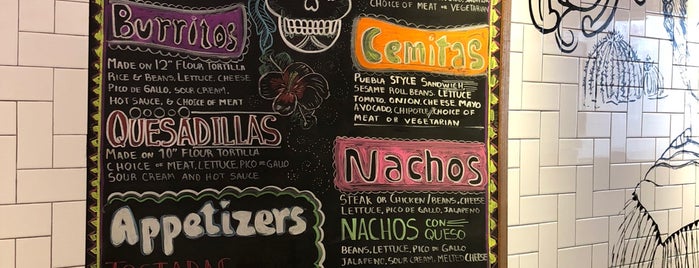 Burritos
Made on 12" Flour Tortilla
Rice & Beans, Lettuce, Cheese
Pico de Gallo, Sour Cream,
Hot Sauce, & Choice of Meat
Quesadillas
Made on 10" Flour Tortilla
Choice of Meat, Lettuce, Pico de Gallo
Sour Cream and Hot Sauce
Appetizers
Tostadas
Choice of Meat or Vegetarian
Cemitas
Puebla Style Sandwich
Sesame Roll Beans, Lettuce
Tomato, Onion, Cheese, Mayo
Avocado, Chipotle/Choice of
Meat or Vegetarian
Nachos
Steak or Chicken/Beans, Cheese
Lettuce, Pico de Gallo, Jalapeno
Nachos con Queso
Beans, Lettuce, Pico de Gallo
Jalapeno, Sour Cream, Melted Cheese